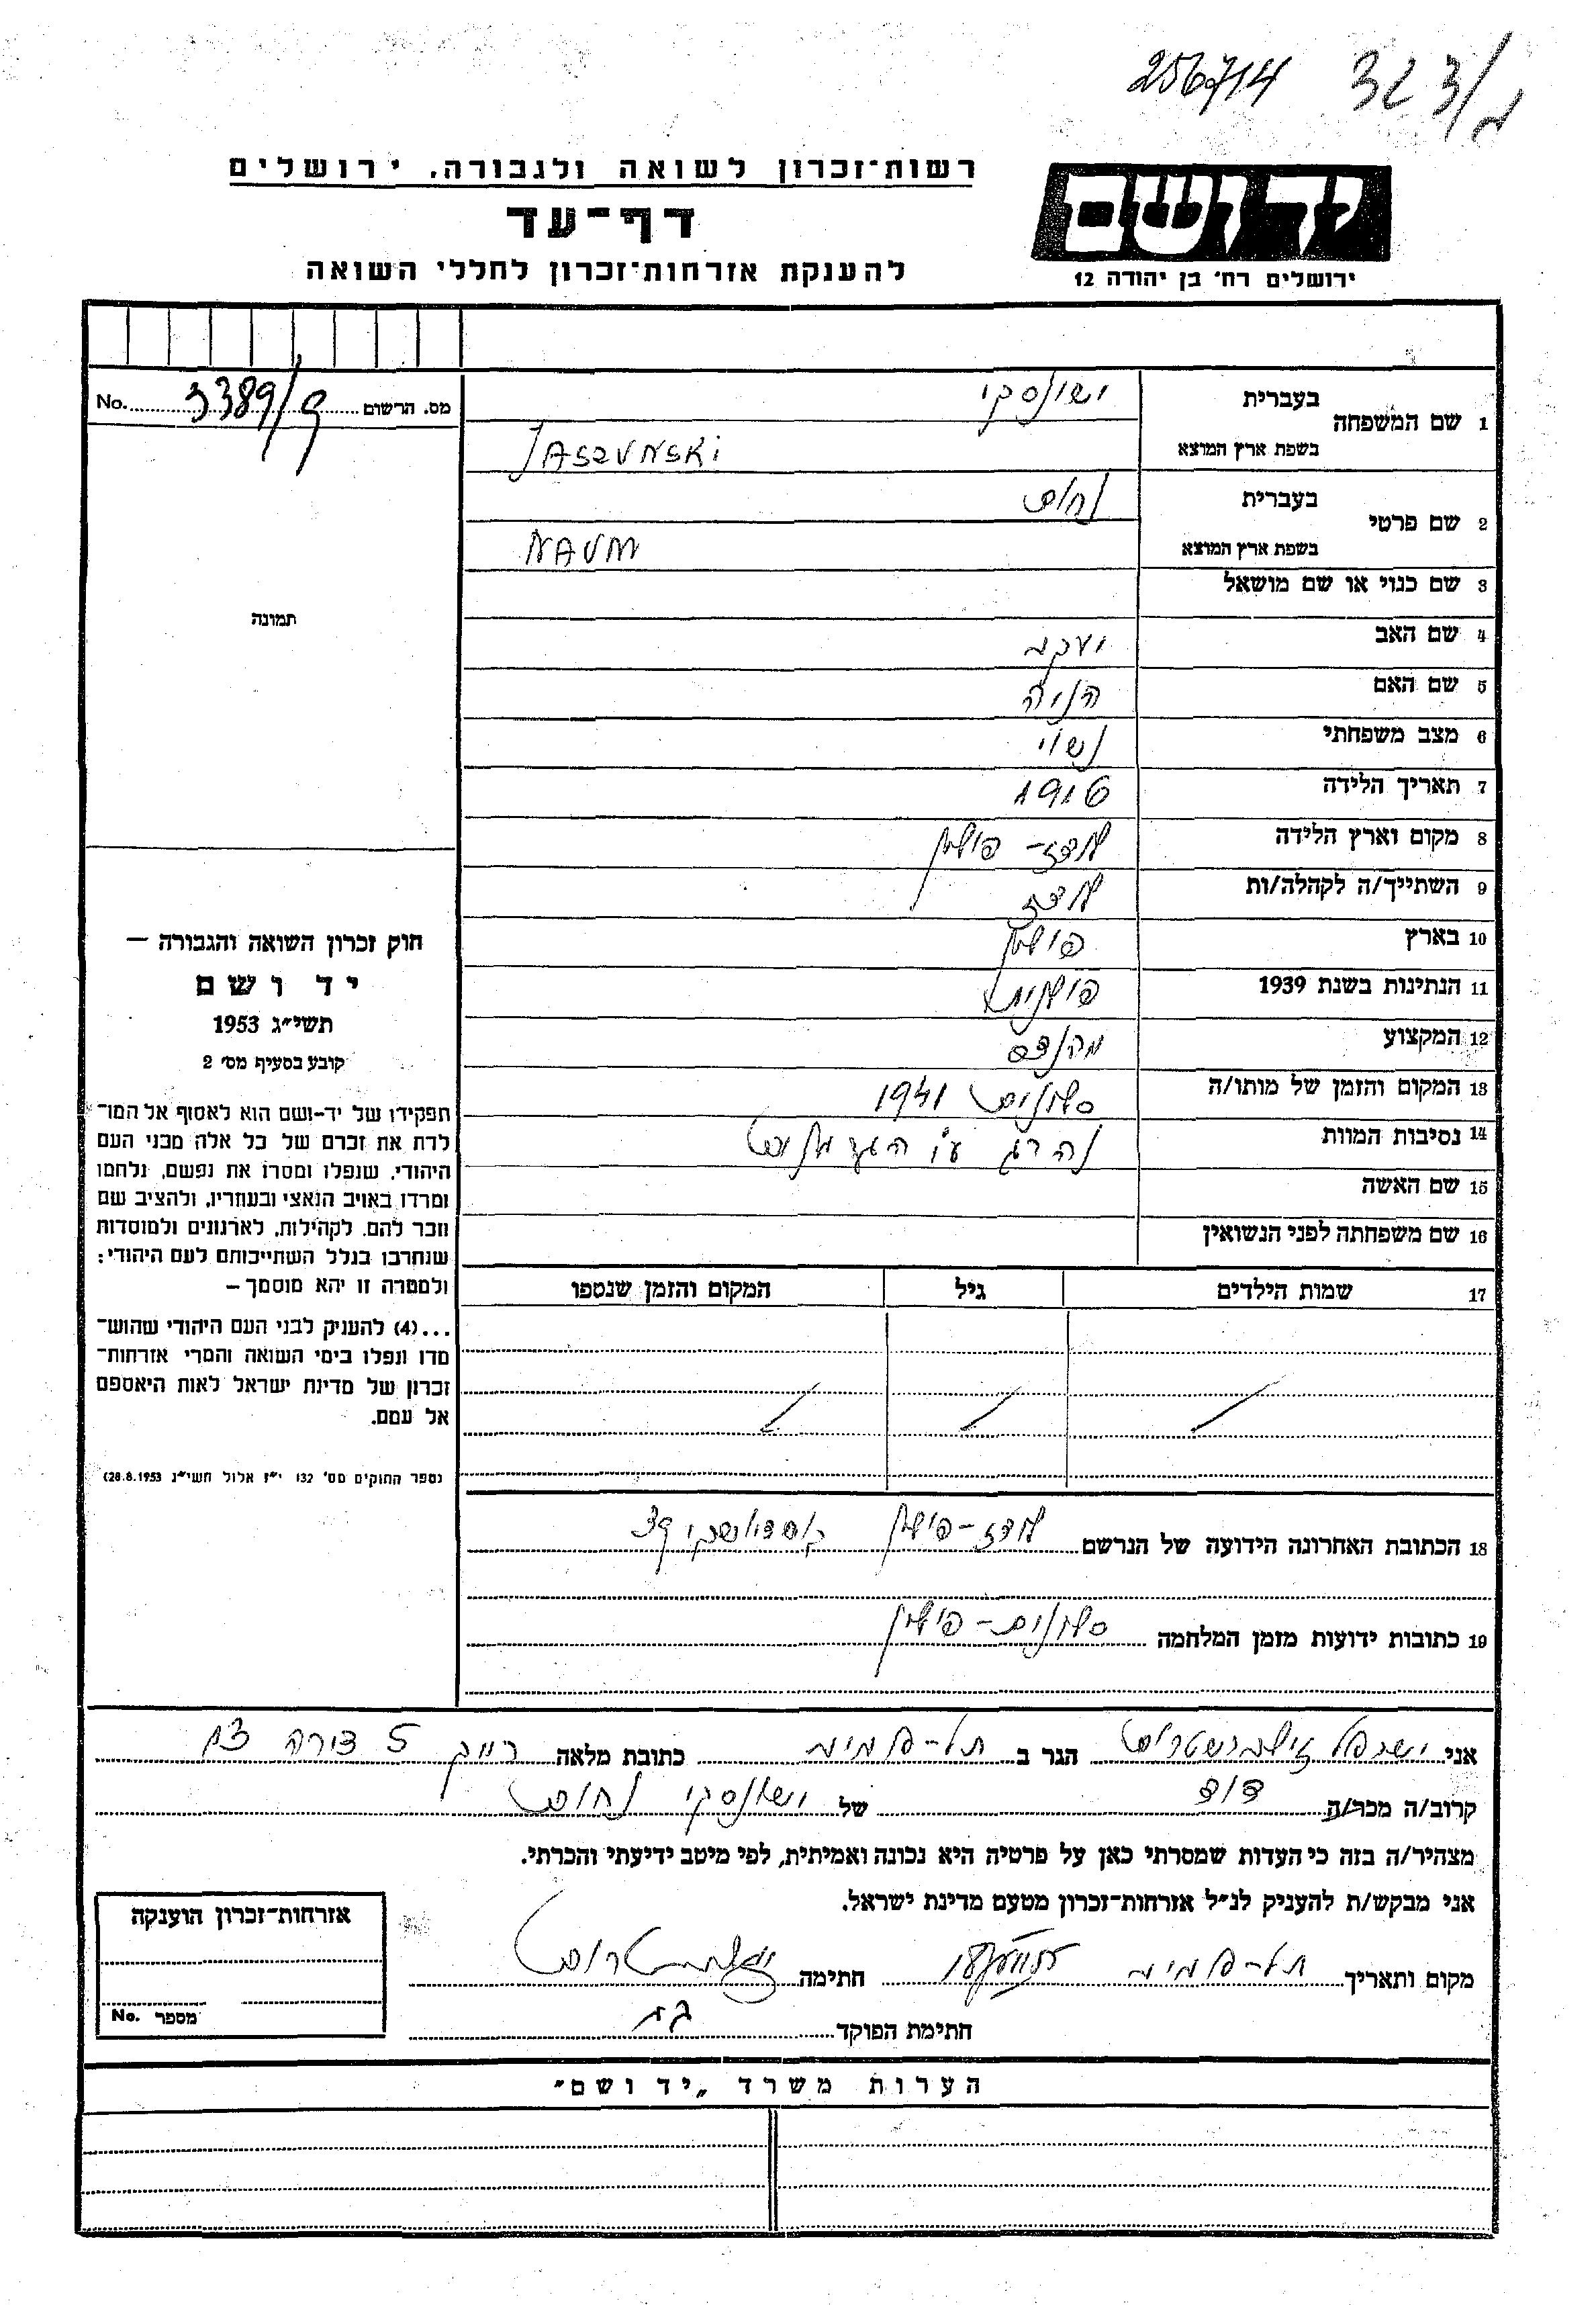 256714 323/
רשות־זכרון לשואה ולגבורה, ירושלים
דף־עד
להענקת אזרחות־זכרון לחללי השואה
יד ושם
ירושלים רח' בן יהודה 12
מס. הרשום 3389/ No.
1 שם המשפחה בעברית ישונסקי
בשפת ארץ המוצא JASZUNSKI
2 שם פרטי בעברית נחום
בשפת ארץ המוצא NAUM
3 שם כנוי או שם מושאל
4 שם האב יעקב
5 שם האם הניה
6 מצב משפחתי נשוי
7 תאריך הלידה 1916
8 מקום וארץ הלידה לודז - פולין
9 השתייך/ה לקהלה/ות לודז
10 בארץ פולין
11 הנתינות בשנת 1939 פולנית
12 המקצוע מהנדס
13 המקום והזמן של מותו/ה סלונים 1941
14 נסיבות המוות נהרג ע"י הגרמנים
15 שם האשה
16 שם משפחתה לפני הנשואין
17 שמות הילדים גיל המקום והזמן שנספו
תמונה
חוק זכרון השואה והגבורה —
יד ושם
תשי״ג 1953
קובע בסעיף מס' 2
תפקידו של יד-ושם הוא לאסוף אל המו־
לדת את זכרם של כל אלה מבני העם
היהודי, שנפלו ומסרו את נפשם, נלחמו
ומרדו באויב הנאצי ובעוזריו, ולהציב שם
וזכר להם, לקהילות, לארגונים ולמוסדות
שנחרבו בגלל השתייכותם לעם היהודי;
ולמטרה זו יהא מוסמך —
...(4) להעניק לבני העם היהודי שהוש־
מדו ונפלו בימי השואה והמרי אזרחות־
זכרון של מדינת ישראל לאות היאספם
אל עמם.
(ספר החוקים מס' 132 י״ז אלול תשי״ג 28.8.1953)
18 הכתובת האחרונה הידועה של הנרשם לודז - פולין
19 כתובות ידועות מזמן המלחמה סלונים - פולין
אני ישראל זילברשטרום הגר ב תל-אביב כתובת מלאה 5 דירה
קרוב/ה מכר/ה דוד של ישונסקי נחום
מצהיר/ה בזה כי העדות שמסרתי כאן על פרטיה היא נכונה ואמיתית, לפי מיטב ידיעתי והכרתי.
אני מבקש/ת להעניק לנ״ל אזרחות־זכרון מטעם מדינת ישראל.
מקום ותאריך תל-אביב חתימה זילברשטרום
חתימת הפוקד
אזרחות־זכרון הוענקה
מספר No.
הערות משרד „יד ושם״